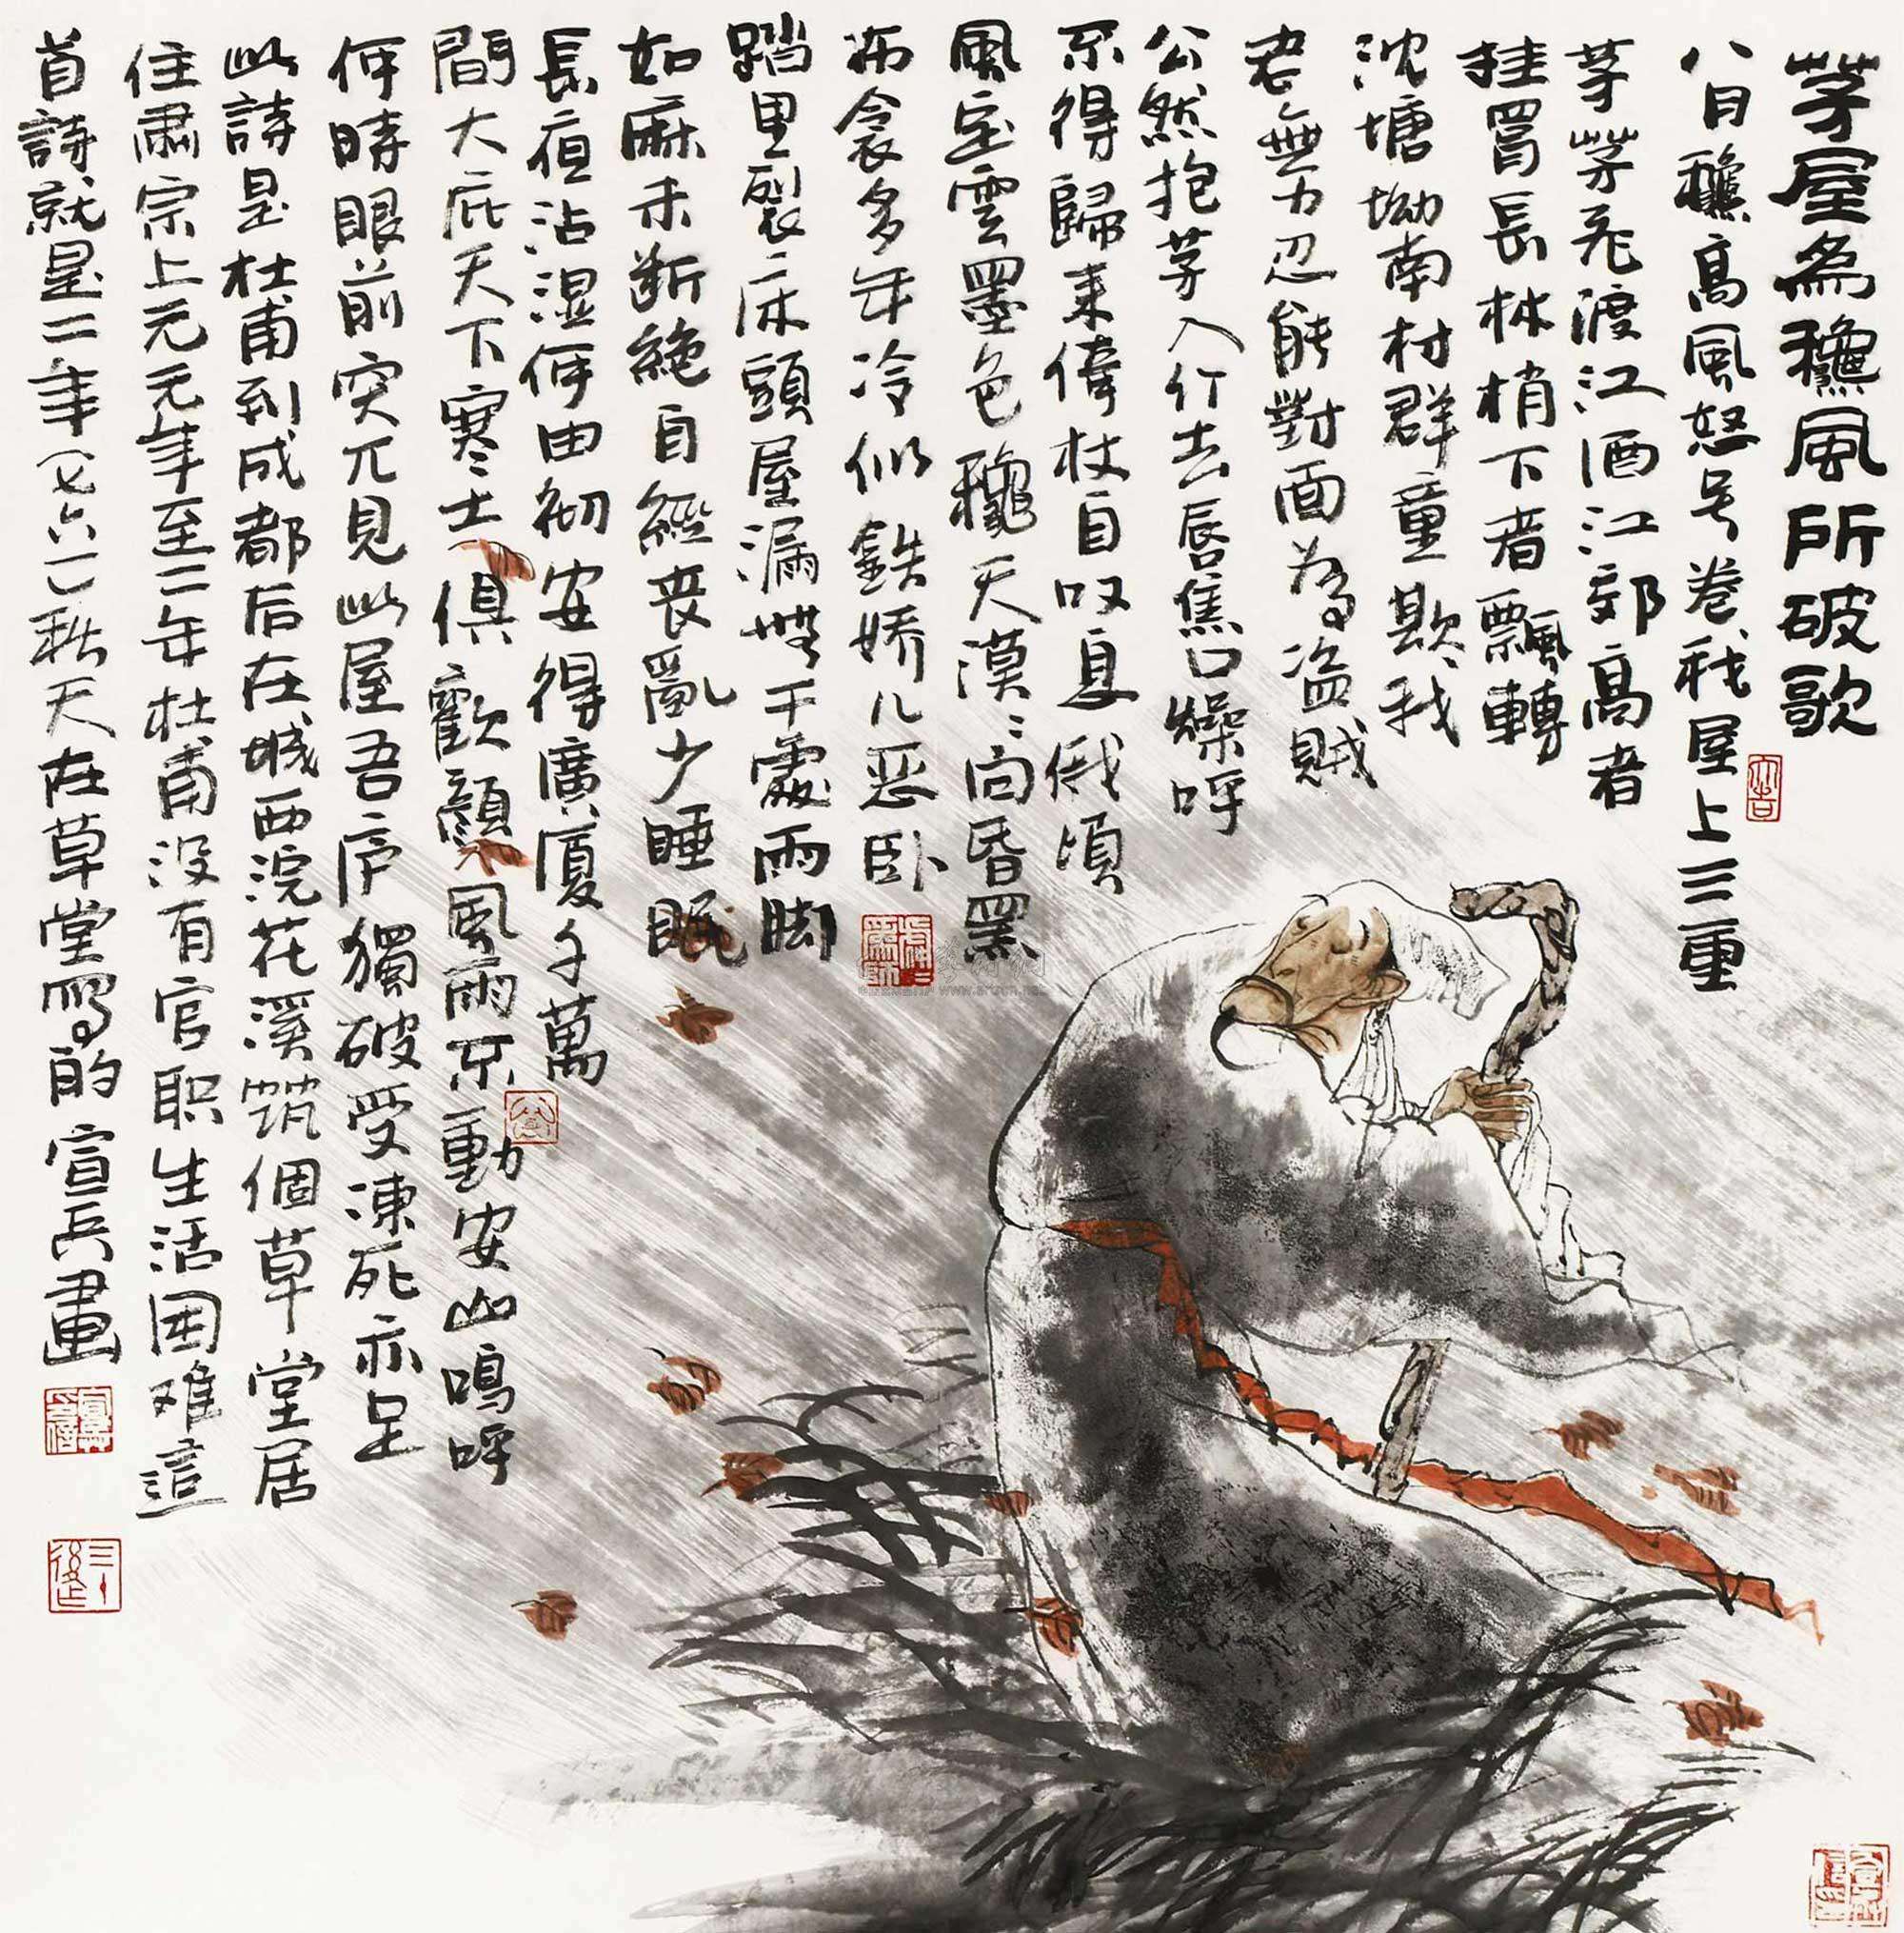 茅屋為龝風所破歌
八月龝高風怒号卷我屋上三重
茅茅飛渡江洒江郊高者
挂罥長林梢下者飄轉
沈塘坳南村群童欺我
老無力忍能對面為盗賊
公然抱茅入竹去唇焦口燥呼
不得歸来倚杖自叹息俄頃
風定雲墨色龝天漠漠向昏黑
布衾多年冷似鉄嬌儿恶卧
踏里裂床頭屋漏無干處雨脚
如麻未断絶自經丧亂少睡眠
長夜沾湿何由彻安得廣厦千萬
間大庇天下寒士俱歡顔風雨不動安山嗚呼
何時眼前突兀見此屋吾庐獨破受凍死亦足
此詩是杜甫到成都后在城西浣花溪筑個草堂居
住肃宗上元元年至二年杜甫没有官职生活困难這
首詩就是二年七六一秋天在草堂寫的宣兵畫